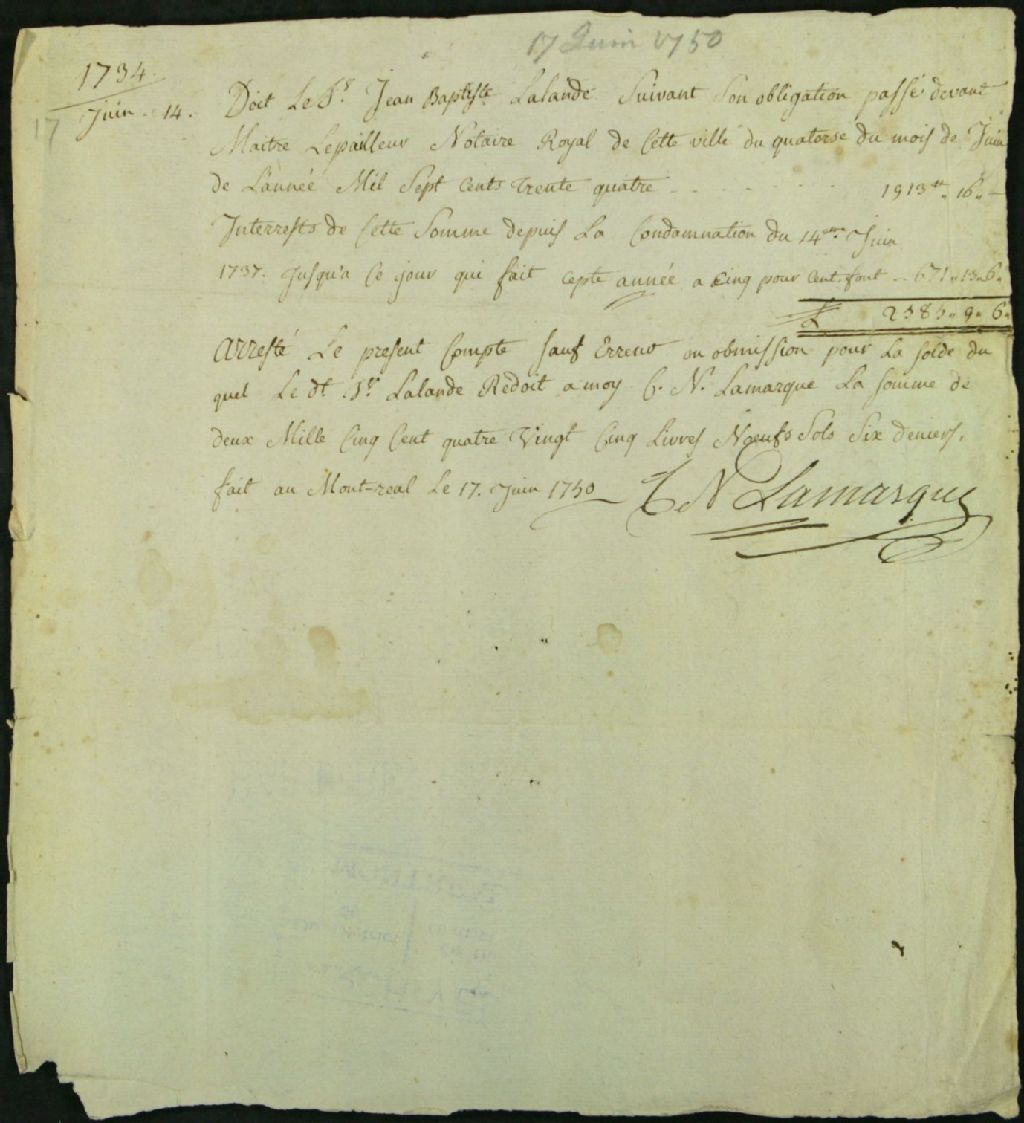 17 Juin 1750
1734
17
Juin. 14. Doit Le Sr. Jean Baptiste Lalande Suivant Son obligation passé devant
Maitre Lepailleur Notaire Royal de Cette ville du quatorse du mois de Juin
de L'année Mil Sept Cents Trente quatre 1913tt.. 16s..
Interrests de Cette Somme depuis La Condamnation du 14me Juin
1737. jusqu'a Ce jour qui fait cepte année a Cinq pour cent. font .. 671.. 13.. 6..
£ 2585.. 9.. 6..
Arresté Le present Compte sauf Erreur ou obmission pour La solde du
quel Le dt. Sr. Lalande Redoit a moy C. N. Lamarque La somme de
deux Mille Cinq Cent quatre Vingt Cinq Livres Noeufs Sols Six deniers,
fait au Mont-real Le 17. Juin 1750 C N Lamarque